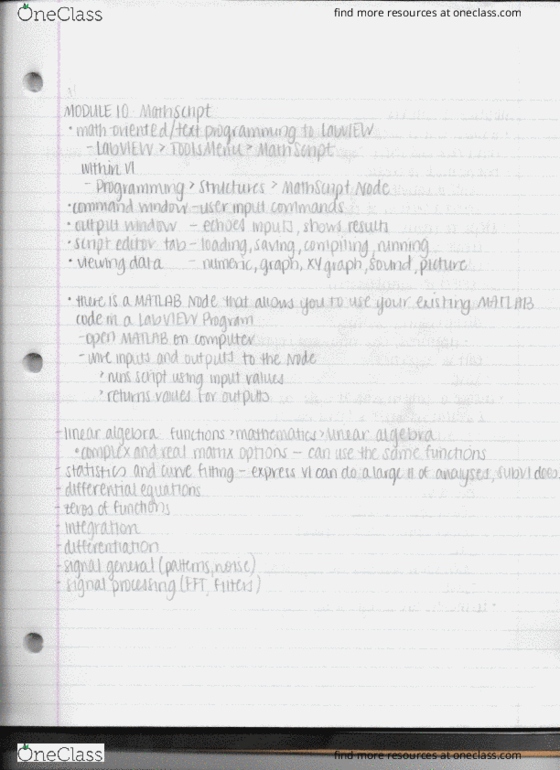 OneClass
find more resources at oneclass.com
MODULE 10 MathScript
• math oriented/text programming to LabVIEW
- LabVIEW > TOOLS Menu > MathScript
within VI
- Programming > Structures > MathScript Node
• command window - user input commands
• output window - echoes inputs, shows results
• script editor tab - loading, saving, compiling, running
• viewing data - numeric, graph, XY graph, sound, picture
• there is a MATLAB Node that allows you to use your existing MATLAB
code in a LabVIEW Program
- open MATLAB on computer
- wire inputs and outputs to the Node
> runs script using input values
> returns values for outputs
- linear algebra functions > mathematics > linear algebra
• complex and real matrix options - can use the same functions
- statistics and curve fitting - express VI can do a large # of analyses, subVI does
- differential equations
- zeros of functions
- integration
- differentiation
- signal general (patterns, noise)
- signal processing (FFT, Filters)
OneClass
find more resources at oneclass.com